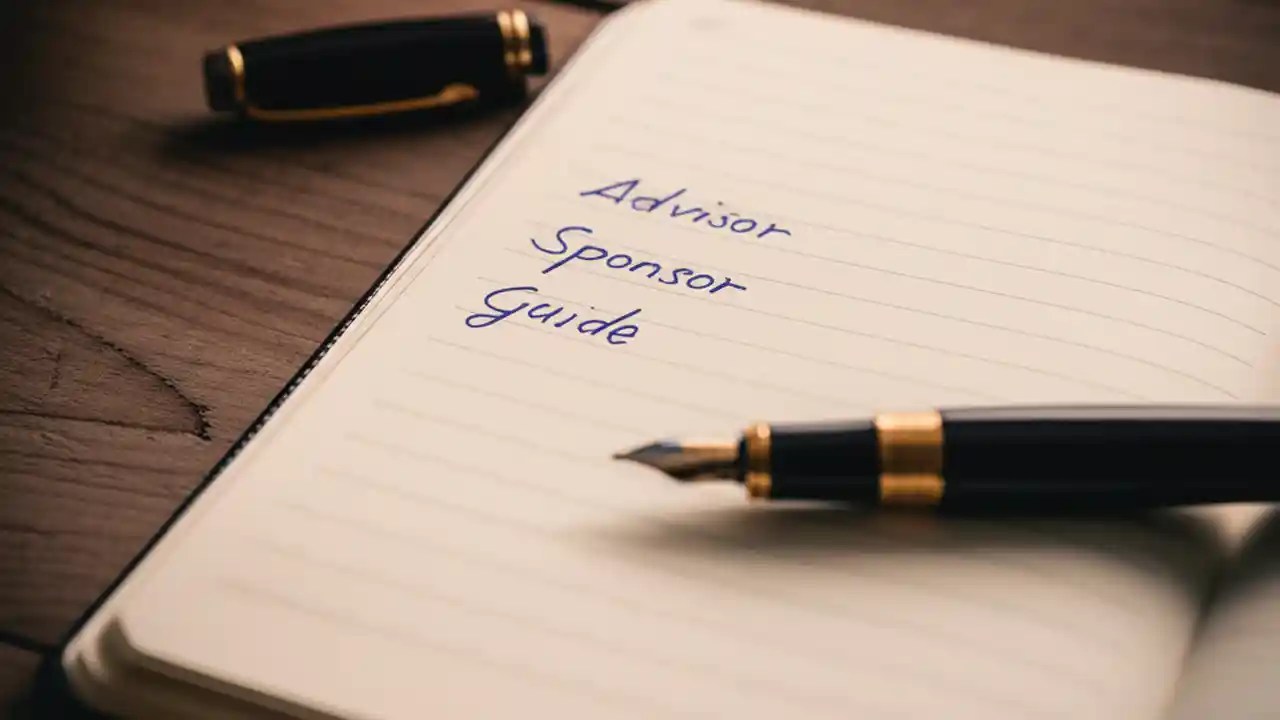 Advisor
Sponsor
Guide